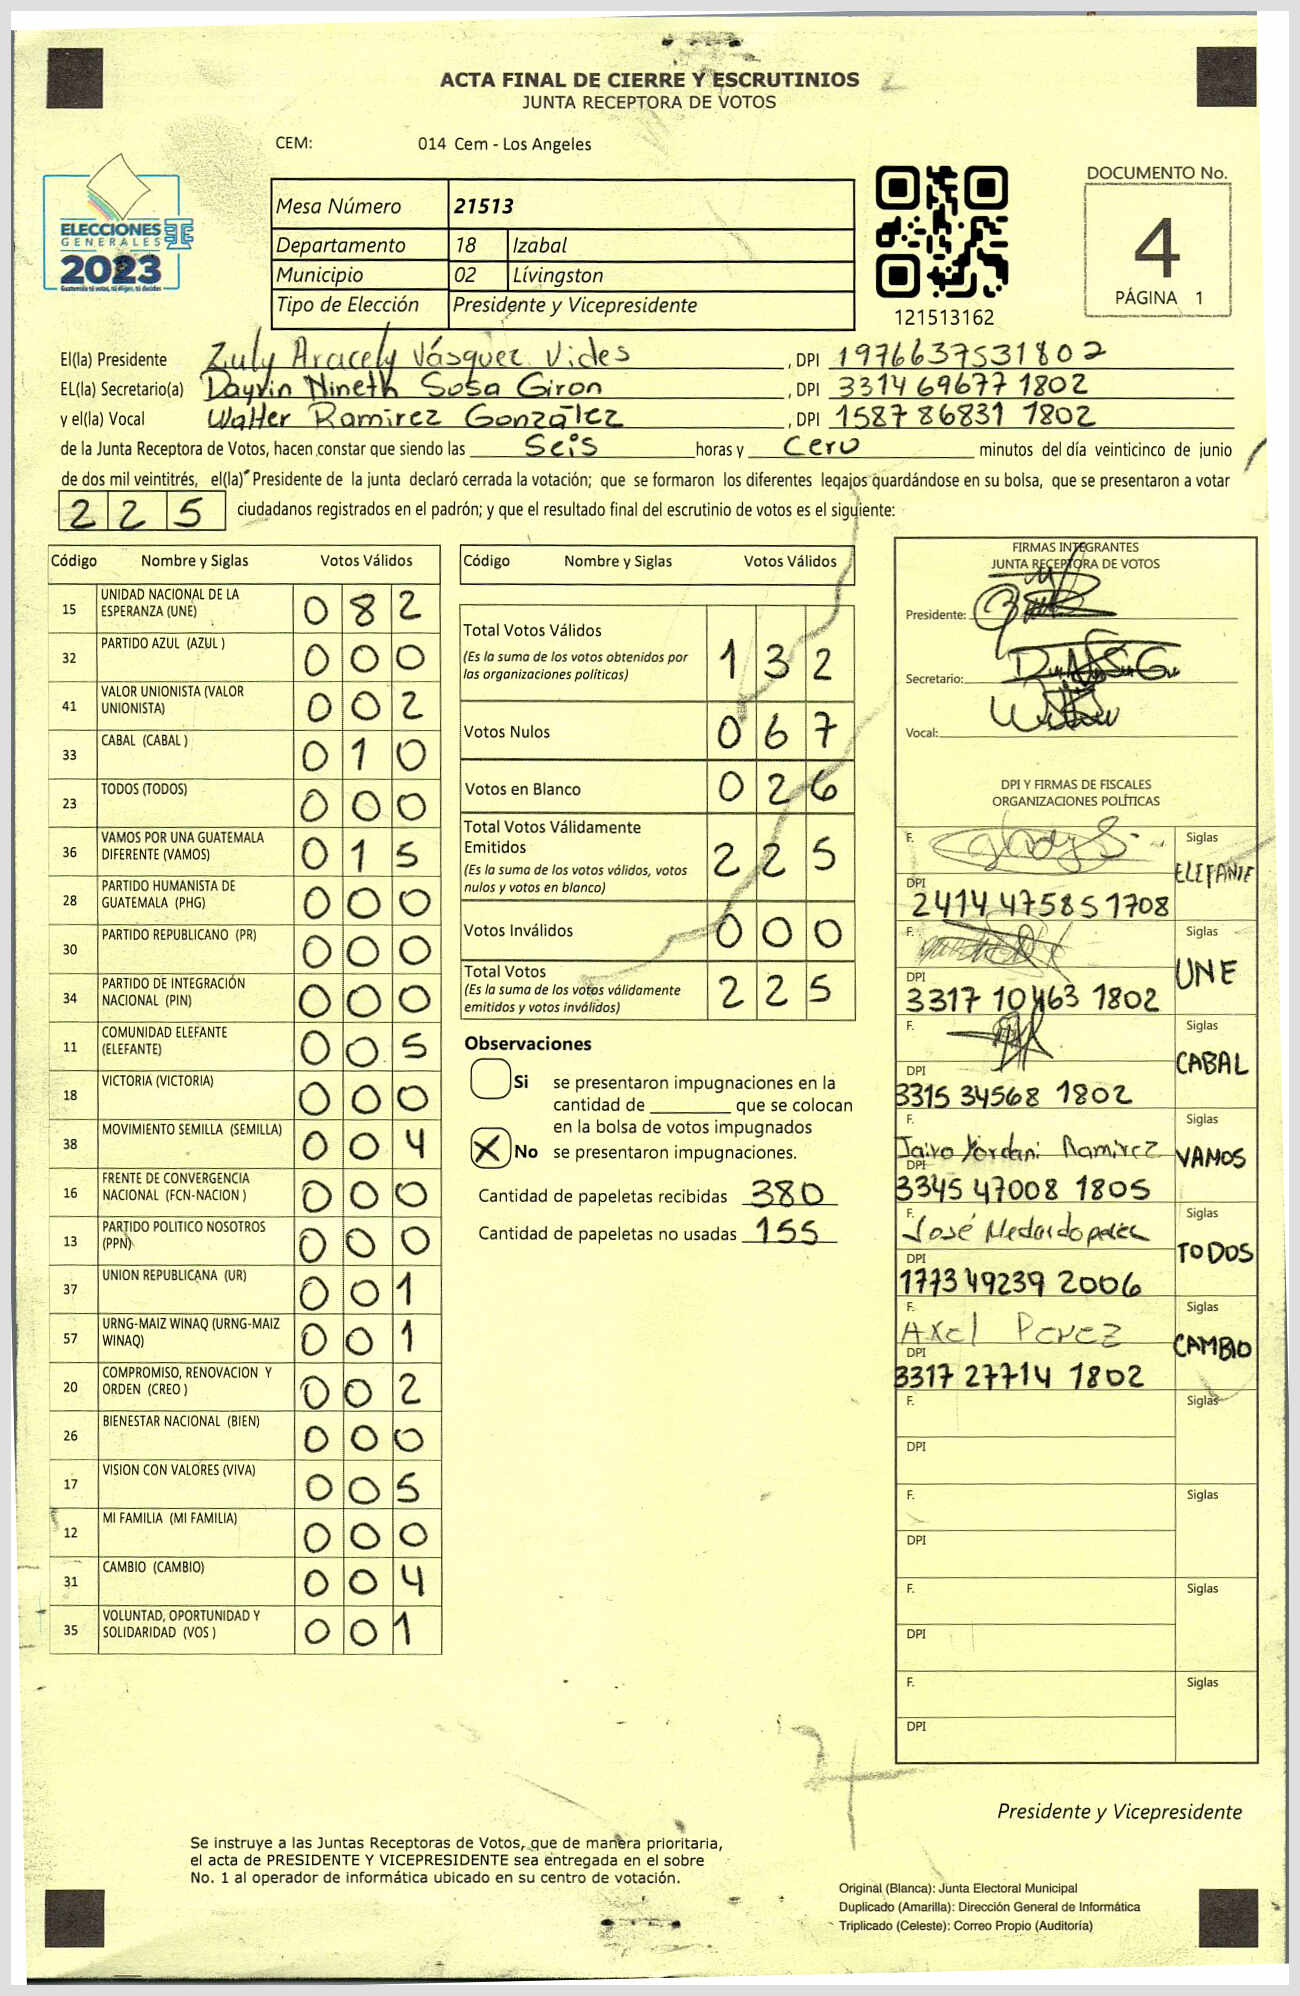 ACTA FINAL DE CIERRE Y ESCRUTINIOS
JUNTA RECEPTORA DE VOTOS
CEM: 014 Cem - Los Angeles
ELECCIONES
GENERALES
2023
Guatemala tú votas, tú eliges, tú decides
Mesa Número 21513
Departamento 18 Izabal
Municipio 02 Lívingston
Tipo de Elección Presidente y Vicepresidente
121513162
DOCUMENTO No.
4
PÁGINA 1
El(la) Presidente Zuly Aracely Vásquez Vides, DPI 1976637531802
EL(la) Secretario(a) Dayrin Nineth Sosa Giron, DPI 3314 69677 1802
y el(la) Vocal Walter Ramirez González, DPI 1587 86831 1802
de la Junta Receptora de Votos, hacen constar que siendo las Seis horas y Cero minutos del día veinticinco de junio
de dos mil veintitrés, el(la) Presidente de la junta declaró cerrada la votación; que se formaron los diferentes legajos guardándose en su bolsa, que se presentaron a votar
225 ciudadanos registrados en el padrón; y que el resultado final del escrutinio de votos es el siguiente:
Código Nombre y Siglas Votos Válidos
15 UNIDAD NACIONAL DE LA ESPERANZA (UNE) 082
32 PARTIDO AZUL (AZUL ) 000
41 VALOR UNIONISTA (VALOR UNIONISTA) 002
33 CABAL (CABAL ) 010
23 TODOS (TODOS) 000
36 VAMOS POR UNA GUATEMALA DIFERENTE (VAMOS) 015
28 PARTIDO HUMANISTA DE GUATEMALA (PHG) 000
30 PARTIDO REPUBLICANO (PR) 000
34 PARTIDO DE INTEGRACIÓN NACIONAL (PIN) 000
11 COMUNIDAD ELEFANTE (ELEFANTE) 005
18 VICTORIA (VICTORIA) 000
38 MOVIMIENTO SEMILLA (SEMILLA) 004
16 FRENTE DE CONVERGENCIA NACIONAL (FCN-NACION ) 000
13 PARTIDO POLITICO NOSOTROS (PPN) 000
37 UNION REPUBLICANA (UR) 001
57 URNG-MAIZ WINAQ (URNG-MAIZ WINAQ) 001
20 COMPROMISO, RENOVACION Y ORDEN (CREO ) 002
26 BIENESTAR NACIONAL (BIEN) 000
17 VISION CON VALORES (VIVA) 005
12 MI FAMILIA (MI FAMILIA) 000
31 CAMBIO (CAMBIO) 004
35 VOLUNTAD, OPORTUNIDAD Y SOLIDARIDAD (VOS ) 001
Código Nombre y Siglas Votos Válidos
Total Votos Válidos 132
(Es la suma de los votos obtenidos por
las organizaciones políticas)
Votos Nulos 067
Votos en Blanco 026
Total Votos Válidamente
Emitidos 225
(Es la suma de los votos válidos, votos
nulos y votos en blanco)
Votos Inválidos 000
Total Votos 225
(Es la suma de los votos válidamente
emitidos y votos inválidos)
Observaciones
Si se presentaron impugnaciones en la
cantidad de ________ que se colocan
en la bolsa de votos impugnados
X No se presentaron impugnaciones.
Cantidad de papeletas recibidas 380
Cantidad de papeletas no usadas 155
FIRMAS INTEGRANTES
JUNTA RECEPTORA DE VOTOS
Presidente:
Secretario:
Vocal:
DPI Y FIRMAS DE FISCALES
ORGANIZACIONES POLÍTICAS
F. Siglas ELEFANTE
DPI 2414 47585 1708
F. Siglas UNE
DPI 3317 10463 1802
F. Siglas CABAL
DPI 3315 34568 1802
F. Jairo Yordani Ramirez Siglas VAMOS
DPI 3345 47008 1805
F. José Medardo perez Siglas TODOS
DPI 1773 49239 2006
F. Axel Perez Siglas CAMBIO
DPI 3317 27714 1802
F. Siglas
DPI
F. Siglas
DPI
F. Siglas
DPI
F. Siglas
DPI
Presidente y Vicepresidente
Se instruye a las Juntas Receptoras de Votos, que de manera prioritaria,
el acta de PRESIDENTE Y VICEPRESIDENTE sea entregada en el sobre
No. 1 al operador de informática ubicado en su centro de votación.
Original (Blanca): Junta Electoral Municipal
Duplicado (Amarilla): Dirección General de Informática
Triplicado (Celeste): Correo Propio (Auditoría)